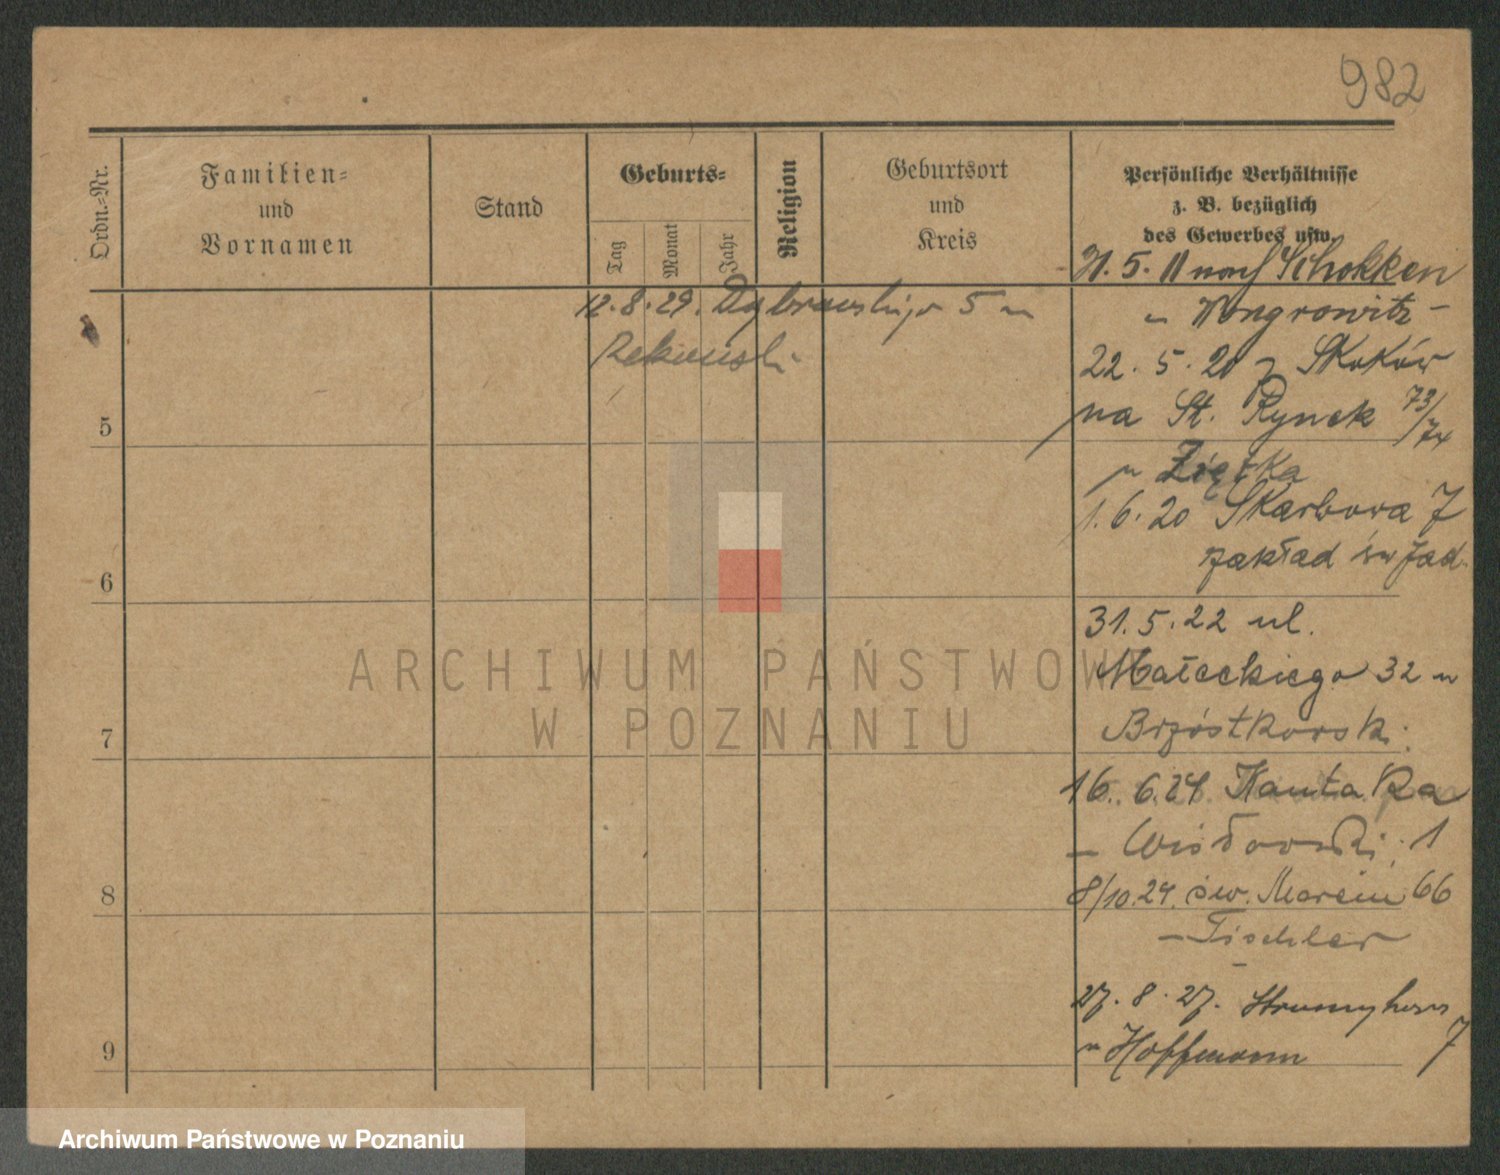 982
Ordn.-Nr.
Familien-
und
Vornamen
Stand
Geburts-
Tag
Monat
Jahr
Religion
Geburtsort
und
Kreis
Persönliche Verhältnisse
z. B. bezüglich
des Gewerbes usw.
5. 11 nach Schokken
Wongrowitz
22. 5. 20 z Skoków
na St. Rynek 73/74
u Ziętka
1. 6. 20 Skarbowa 7
zakład św Jad.
31. 5. 22 ul.
Małeckiego 32 u
Brzóstkowski
16. 6. 24 Kantaka
1
8/10. 24. św. Marcin 66
– Tischler
27. 8. 27. Strumykowa 7
u Hoffmann
12. 8. 29. Dąbrowskiego 5 u
5
6
7
8
9
ARCHIWUM PAŃSTWOWE
W POZNANIU
Archiwum Państwowe w Poznaniu